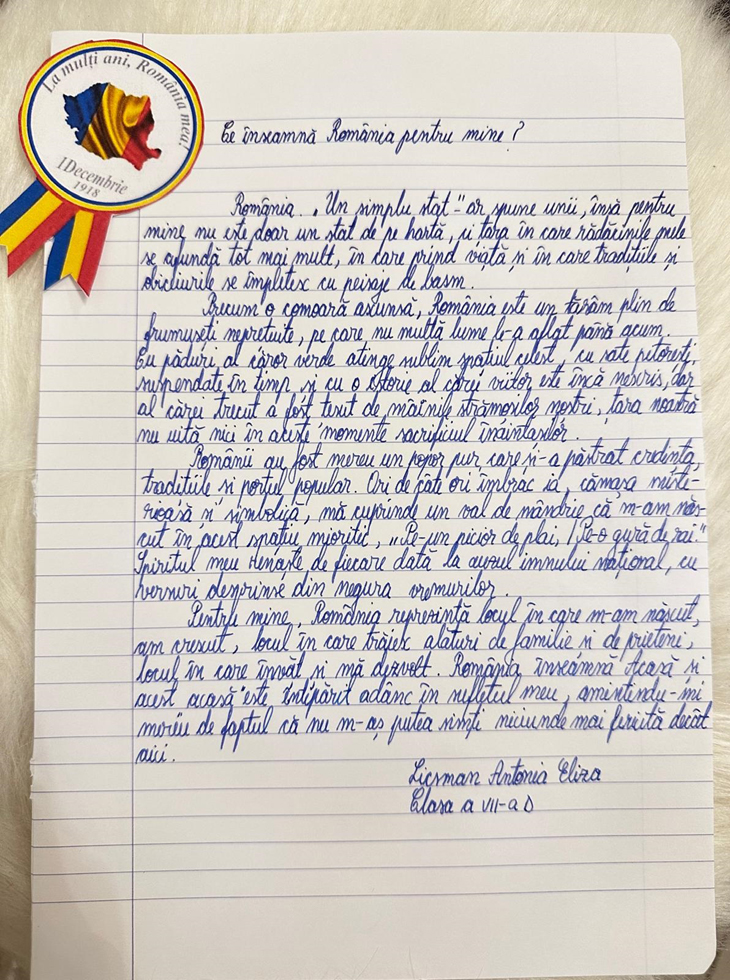 La mulți ani, România mea!
1 Decembrie
1918
Ce înseamnă România pentru mine?
România. „Un simplu stat" ar spune unii, însă pentru
mine nu este doar un stat de pe hartă, ci țara în care rădăcinile mele
se afundă tot mai mult, în care prind viață și în care tradițiile și
obiceiurile se împletesc cu peisaje de basm.
Precum o comoară ascunsă, România este un tărâm plin de
frumuseți neprețuite, pe care nu multă lume le-a aflat până acum.
Cu păduri al căror verde atinge sublim spațiul celest, cu sate pitorești,
suspendate în timp și cu o istorie al cărei viitor este încă nescris, dar
al cărei trecut a fost țesut de mâinile strămoșilor noștri, țara noastră
nu uită nici în aceste momente sacrificiul înaintașilor.
Românii au fost mereu un popor pur, care și-a păstrat credința,
tradițiile și portul popular. Ori de câte ori îmbrac ia, cămașa miste-
rioasă și simbolică, mă cuprinde un val de mândrie că m-am năs-
cut în acest spațiu mioritic, „Pe-un picior de plai, / Pe-o gură de rai."
Spiritul meu renaște de fiecare dată la auzul imnului național, cu
versuri desprinse din negura vremurilor.
Pentru mine, România reprezintă locul în care m-am născut,
am crescut, locul în care trăiesc alături de familie și de prieteni,
locul în care învăț și mă dezvolt. România înseamnă Acasă și
acest acasă este întipărit adânc în sufletul meu, amintindu-mi
mereu de faptul că nu m-aș putea simți niciunde mai fericită decât
aici.
Licsman Antonia Eliza
Clasa a VII-a D